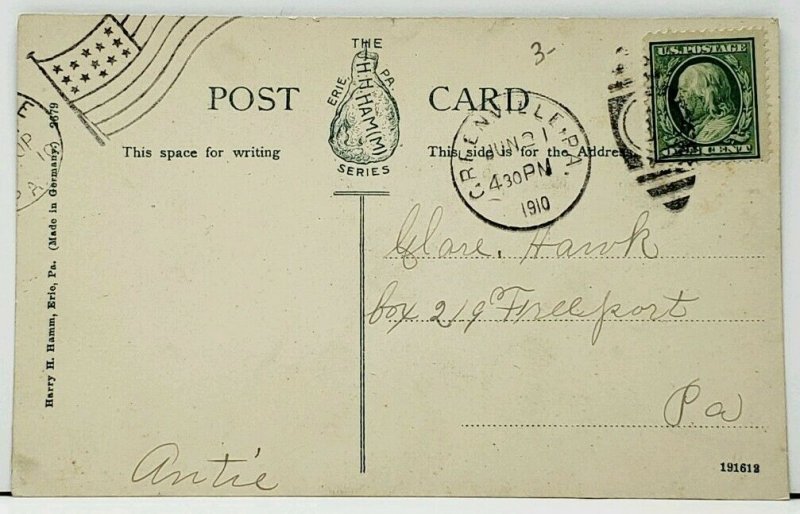 3-
THE
H.H.HAMM
ERIE, PA.
SERIES
POST CARD
This space for writing
This side is for the Address
U.S. POSTAGE
ONE CENT
GREENVILLE, PA.
JUN 21
4 30 PM
1910
Harry H. Hamm, Erie, Pa. (Made in Germany.) 2679
Clare. Hawk
Box 219 Freeport
Pa
Antie
191612